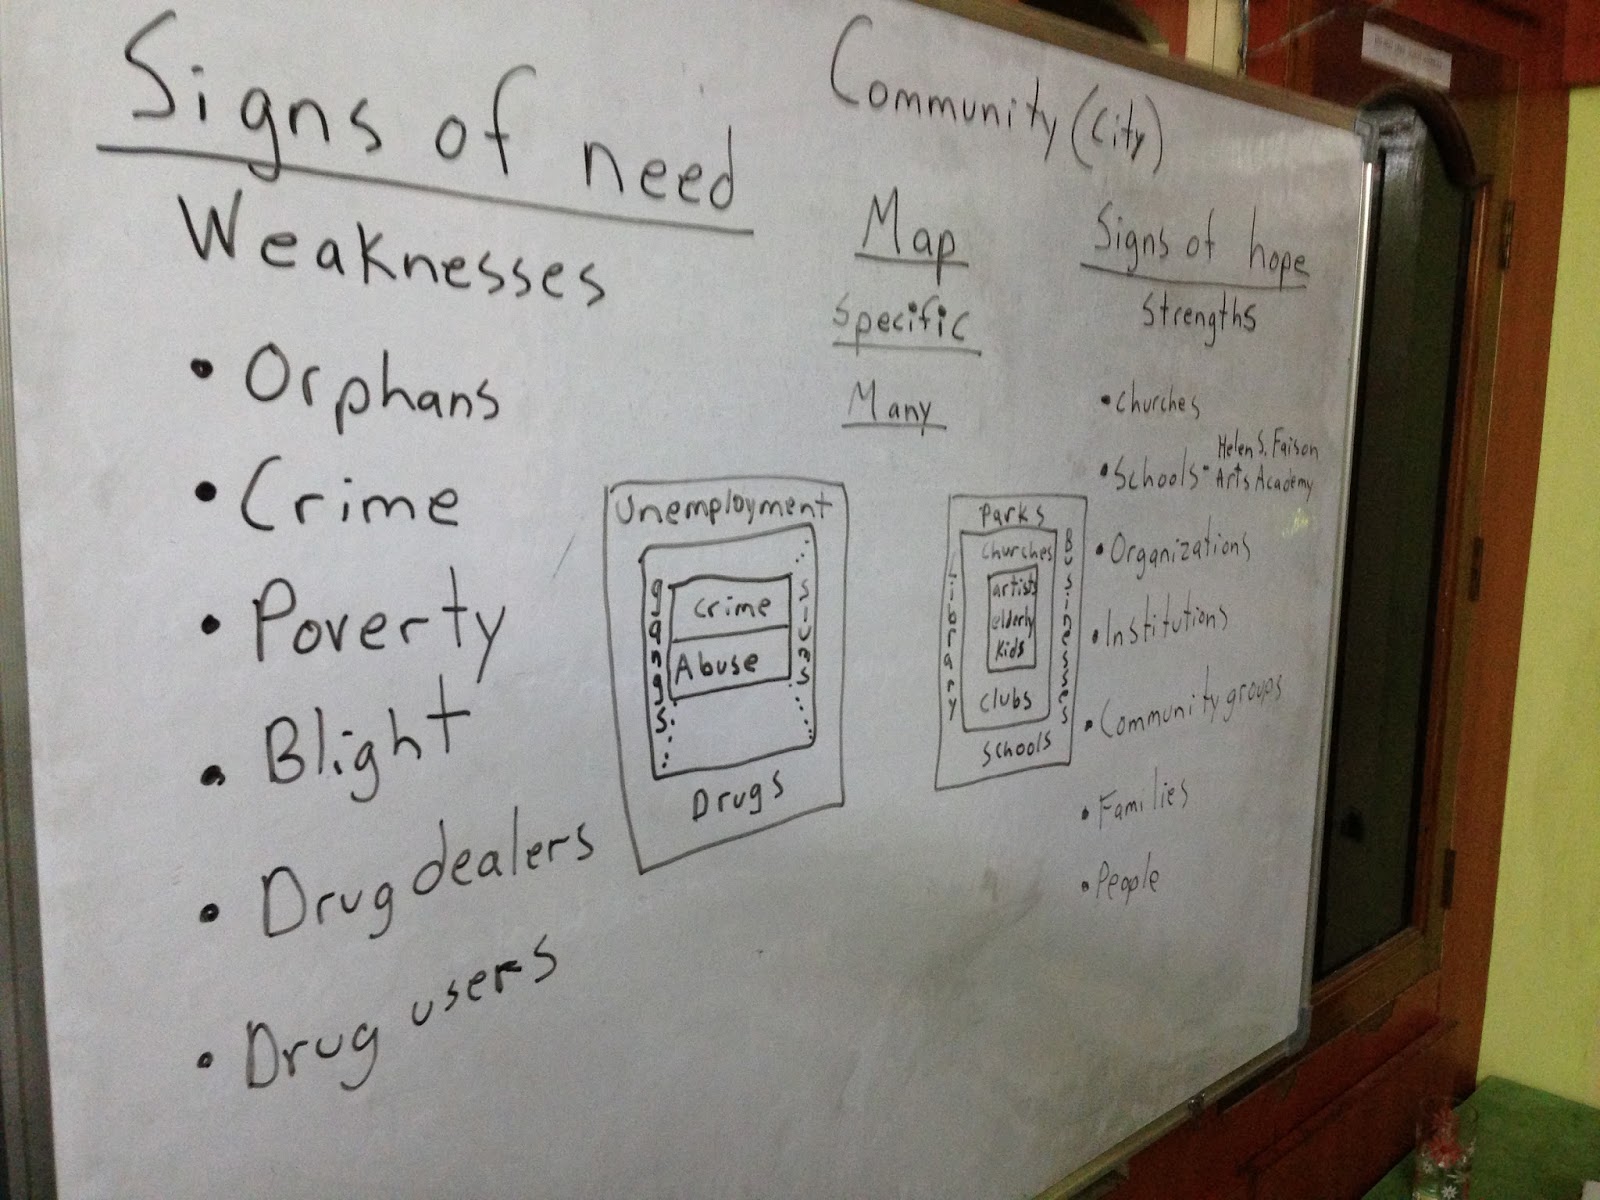 Signs of need
Weaknesses
• Orphans
• Crime
• Poverty
• Blight
• Drug dealers
• Drug users
Community (City)
Map
Specific
Many
Unemployment
gangs
Crime
Abuse
slums
Drugs
Parks
Library
Churches
artists
elderly
Kids
Clubs
Businesses
Schools
Signs of hope
Strengths
• Churches
• Schools - Helen S. Faison
Arts Academy
• Organizations
• Institutions
• Community groups
• Families
• People